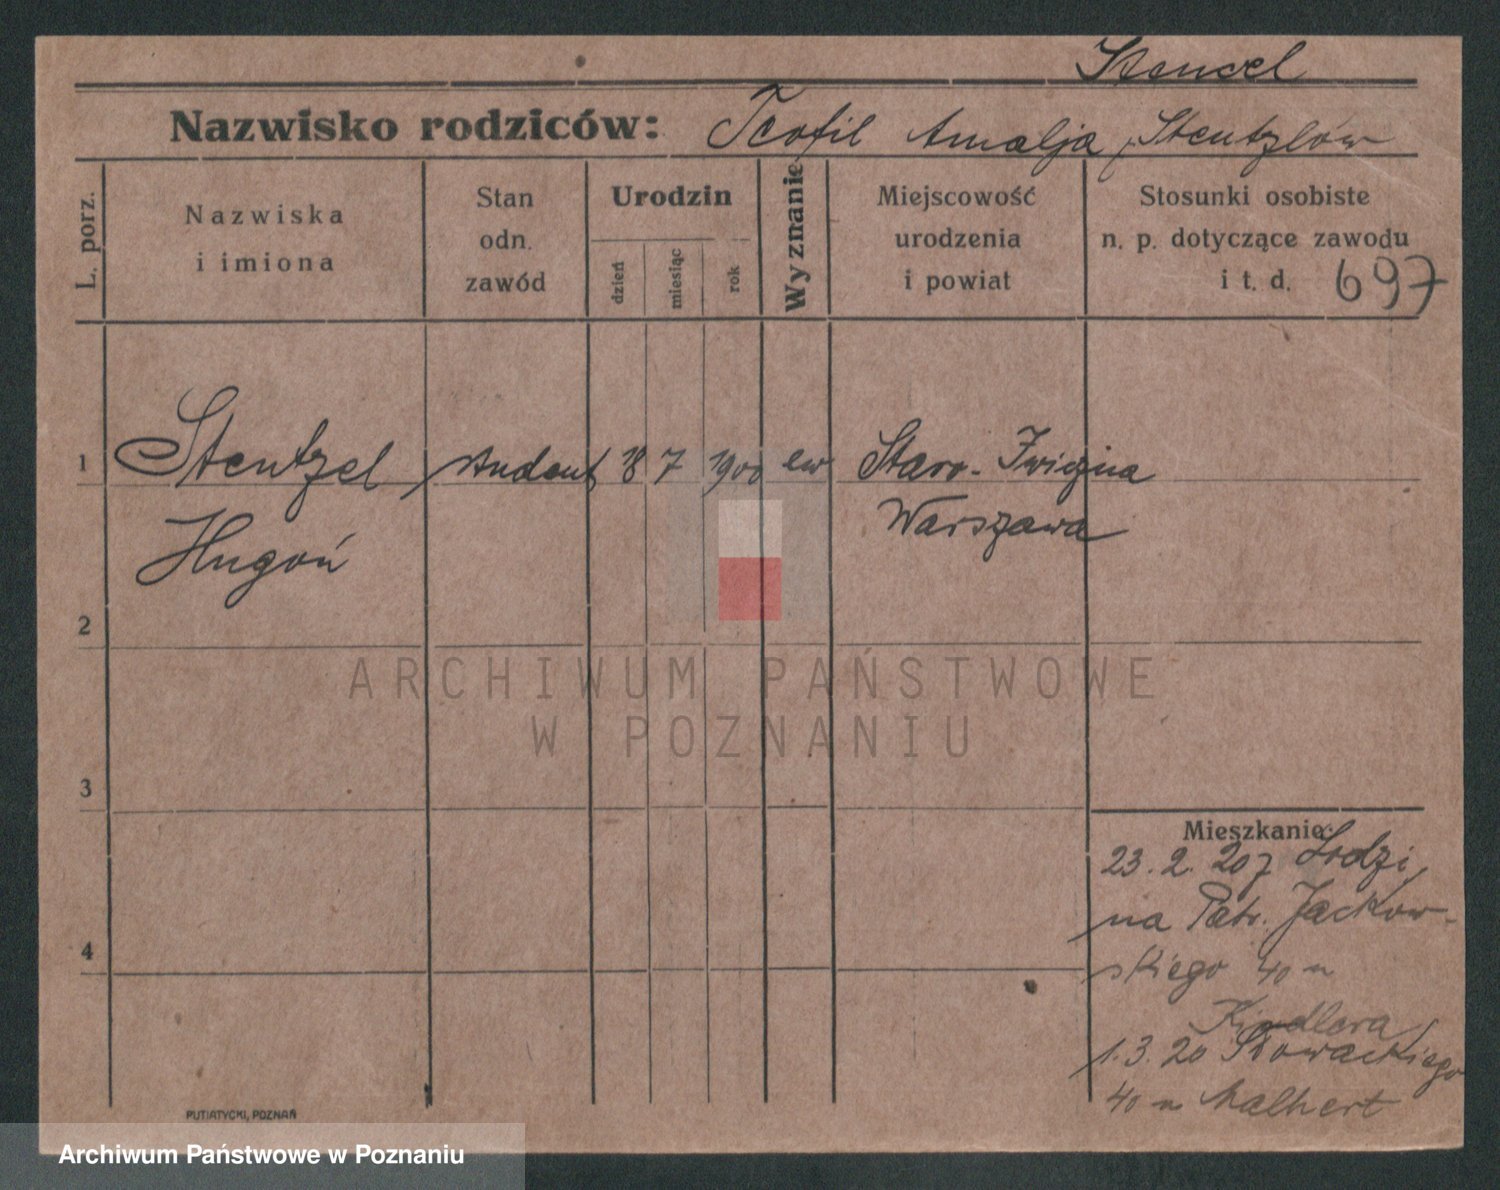 Stencel
Nazwisko rodziców: Teofil Amalja Stentzlów
L. porz.
Nazwiska
i imiona
Stan
odn.
zawód
Urodzin
dzień
miesiąc
rok
Wyznanie
Miejscowość
urodzenia
i powiat
Stosunki osobiste
n. p. dotyczące zawodu
i t. d.
697
1 Stentzel student 18 7 1900 ew Staro-
Hugon Warszawa
2
3
4
Mieszkanie:
23.2.20 z Łodzi
na Patr. Jackow-
skiego 40 m
Kindlera
1.3.20 Słowackiego
40 m Malhert
PUTIATYCKI, POZNAŃ
ARCHIWUM PAŃSTWOWE
W POZNANIU
Archiwum Państwowe w Poznaniu